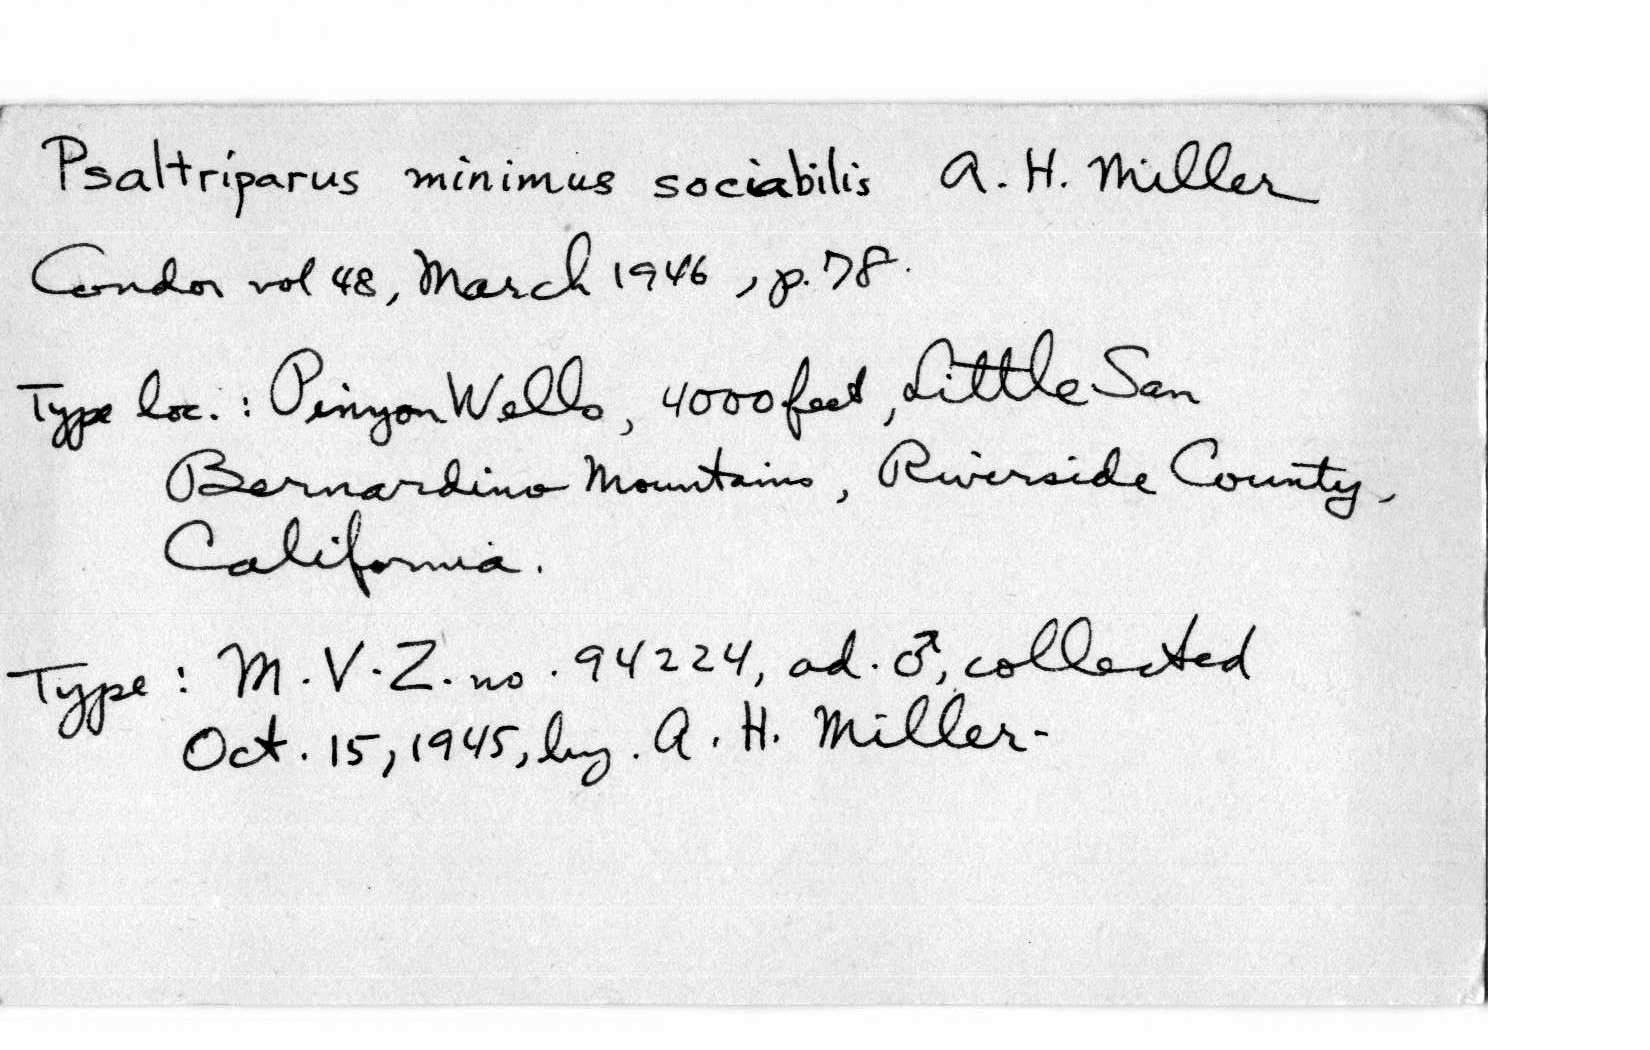 Psaltriparus minimus sociabilis A. H. Miller
Condor vol 48, March 1946, p. 78.
Type loc. : Pinyon Wells, 4000 feet, Little San
Bernardino Mountains, Riverside County,
California.
Type : M.V.Z. no. 94224, ad. ♂, collected
Oct. 15, 1945, by. A. H. Miller-